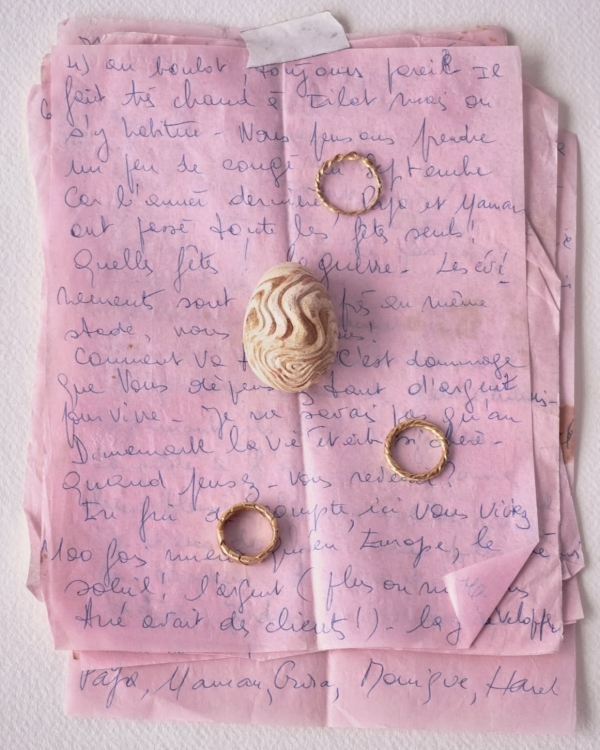 4) au boulot, toujours pareil Il
fait très chaud à Eilat mais on
s'y habitue - Nous pensons prendre
un peu de congé Septembre
Car l'année dernière Papa et Maman
ont passé toute les fêtes seuls!
Quelles fêtes! la guerre. Les évé-
nements sont en même
stade, nous
Comment va C'est dommage
que Vous dépen tant d'argent
pour vivre - Je ne savais pas qu'au
Danemark la vie était si chère.
quand pensez-vous revenir?
En fin de compte, ici vous vivez
100 fois mieux qu'en Europe, le
soleil! l'argent (plus ou
Arié avait des clients!) - la
Papa, Maman, Monique,